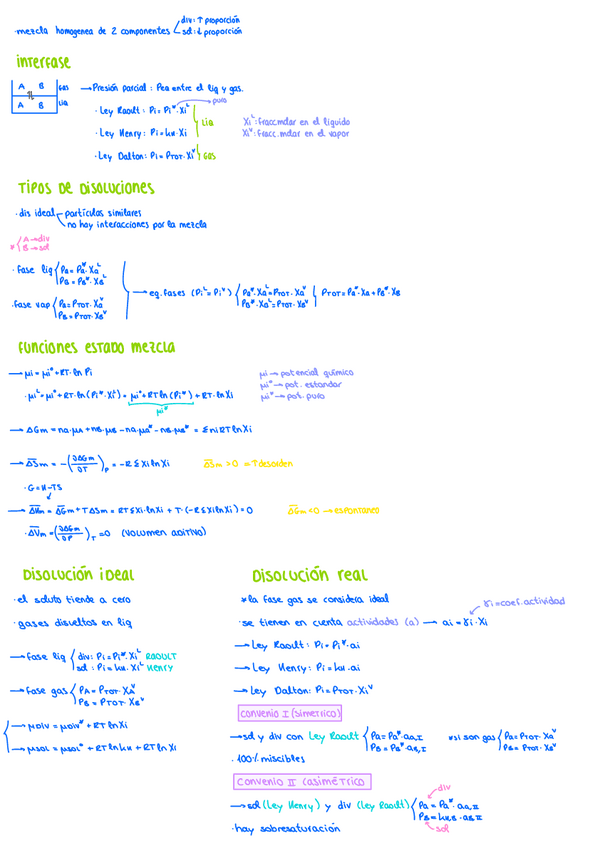 div: ↑ proporción
·mezcla homogenea de 2 componentes
sol: ↓ proporción
interfase
A B gas
A B liq
→ Presión parcial: Pea entre el liq y gas.
puro
· Ley Raoult: Pi = Pi*·Xi^L
· Ley Henry: Pi = kH·Xi
Liq
Xi^L: fracc.molar en el líquido
Xi^V: fracc.molar en el vapor
· Ley Dalton: Pi = PTOT·Xi^V } Gas
Tipos de disoluciones
· dis ideal
partículas similares
no hay interacciones por la mezcla
* { A → div
B → sol
· Fase liq { PA = PA*·XA^L
PB = PB*·XB^L
→ eq. fases (Pi^L = Pi^V) { PA*·XA^L = PTOT·XA^V
PB*·XB^L = PTOT·XB^V } PTOT = PA*·XA + PB*·XB
· Fase vap { PA = PTOT·XA^V
PB = PTOT·XB^V
Funciones estado mezcla
→ μi = μi° + RT·ln Pi
μi → potencial químico
μi° → pot. estandar
μi* → pot. puro
· μi^L = μi° + RT·ln(Pi*·Xi^L) = μi° + RT ln(Pi*) + RT·ln Xi
μi*
→ ΔGm = nA·μA + nB·μB − nA·μA* − nB·μB* = Σ ni RT ln Xi
→ ΔSm = −(∂ΔGm/∂T)P = −R Σ Xi ln Xi
ΔSm > 0 = ↑ desorden
· G = H − TS
→ ΔHm = ΔGm + TΔSm = RT Σ Xi·ln Xi + T·(−R Σ Xi ln Xi) = 0
ΔGm < 0 → espontaneo
· ΔVm = (∂ΔGm/∂P)T = 0 (volumen aditivo)
Disolución ideal
· el soluto tiende a cero
· gases disueltos en liq
→ Fase liq { div: Pi = Pi*·Xi^L RAOULT
sol: Pi = kH·Xi^L HENRY
→ Fase gas { PA = PTOT·XA^V
PB = PTOT·XB^V
→ μDIV = μDIV* + RT ln Xi
→ μSOL = μSOL° + RT ln kH + RT ln Xi
Disolución real
*la fase gas se considera ideal
γi = coef. actividad
· se tienen en cuenta actividades (a) → ai = γi·Xi
→ Ley Raoult: Pi = Pi*·ai
→ Ley Henry: Pi = kH·ai
→ Ley Dalton: Pi = PTOT·Xi^V
Convenio I (simetrico)
→ sol y div con Ley Raoult { PA = PA*·aA,I
PB = PB*·aB,I
*si son gas { PA = PTOT·XA^V
PB = PTOT·XB^V
· 100% miscibles
Convenio II (asimétrico
div
→ sol (Ley Henry) y div (Ley Raoult) { PA = PA*·aA,II
PB = kH,B·aB,II
sol
· hay sobresaturación